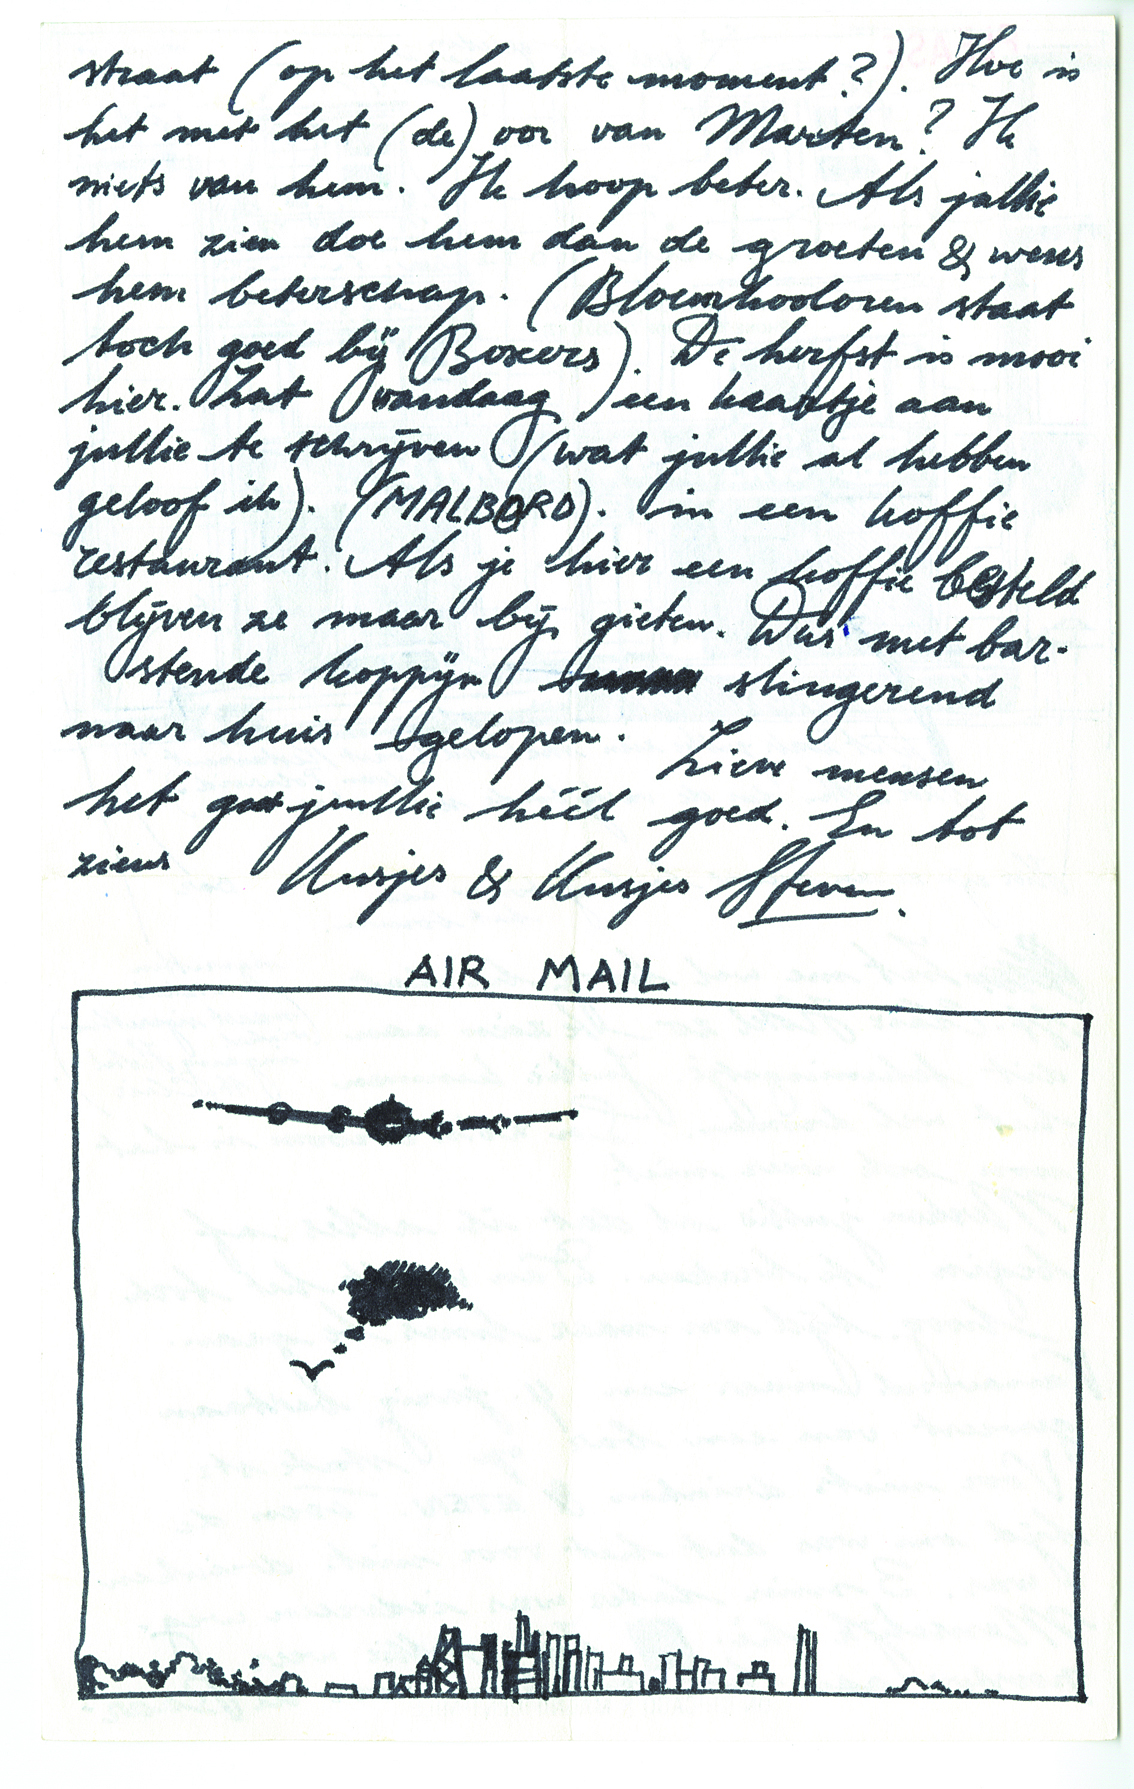 straat (op het laatste moment?). Hoe is
het met het (de) oor van Marten? Ik
niets van hem. Ik hoop beter. Als jullie
hem zien doe hem dan de groeten & wens
hem beterschap. (Bloemkooloren staat
toch goed bij Boxers). De herfst is mooi
hier. Zat vandaag een kaartje aan
jullie te schrijven (wat jullie al hebben
geloof ik). (MALBORO). in een koffie
restaurant. Als je hier een koffie besteld
blijven ze maar bij gieten. Dus met bar-
stende koppijn slingerend
naar huis gelopen. Lieve mensen
het gaat jullie héél goed. En tot
ziens Kusjes & Kusjes Steven.
AIR MAIL